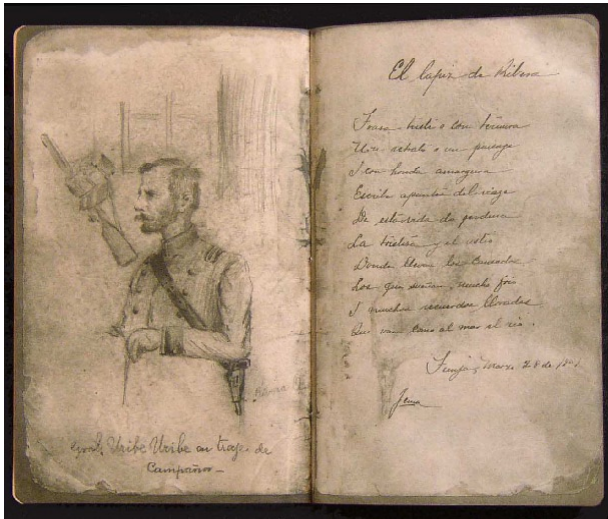 Gral. Uribe Uribe en traje de
Campaña—
El lapiz de Ribera
Traza triste o con ternura
Un retrato o un paisaje
I con honda amargura
Escribe apuntes del viaje
De esta vida de
La tristeza y el
Donde llevan los cansados
Los que sueñan, mucho frio
I muchos recuerdos llorados
Que van como al mar el rio.
Marzo 28 de